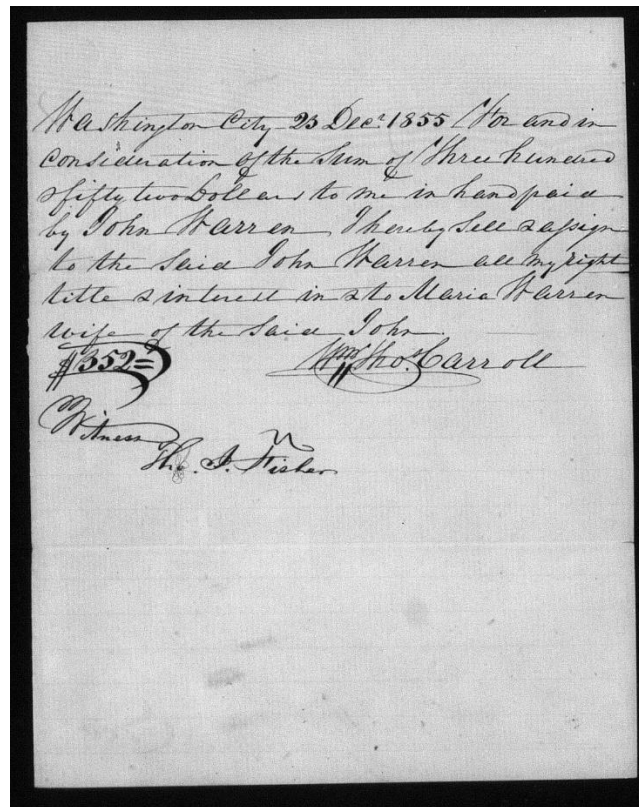 Washington City 23 Decr 1855 For and in
consideration of the Sum of Three hundred
& fifty two Dollars to me in hand paid
by John Warren I hereby Sell & assign
to the Said John Warren all my right
title & interest in & to Maria Warren
wife of the Said John.
$352= Wm Thos. Carroll
Witness
Tho. J. Fisher